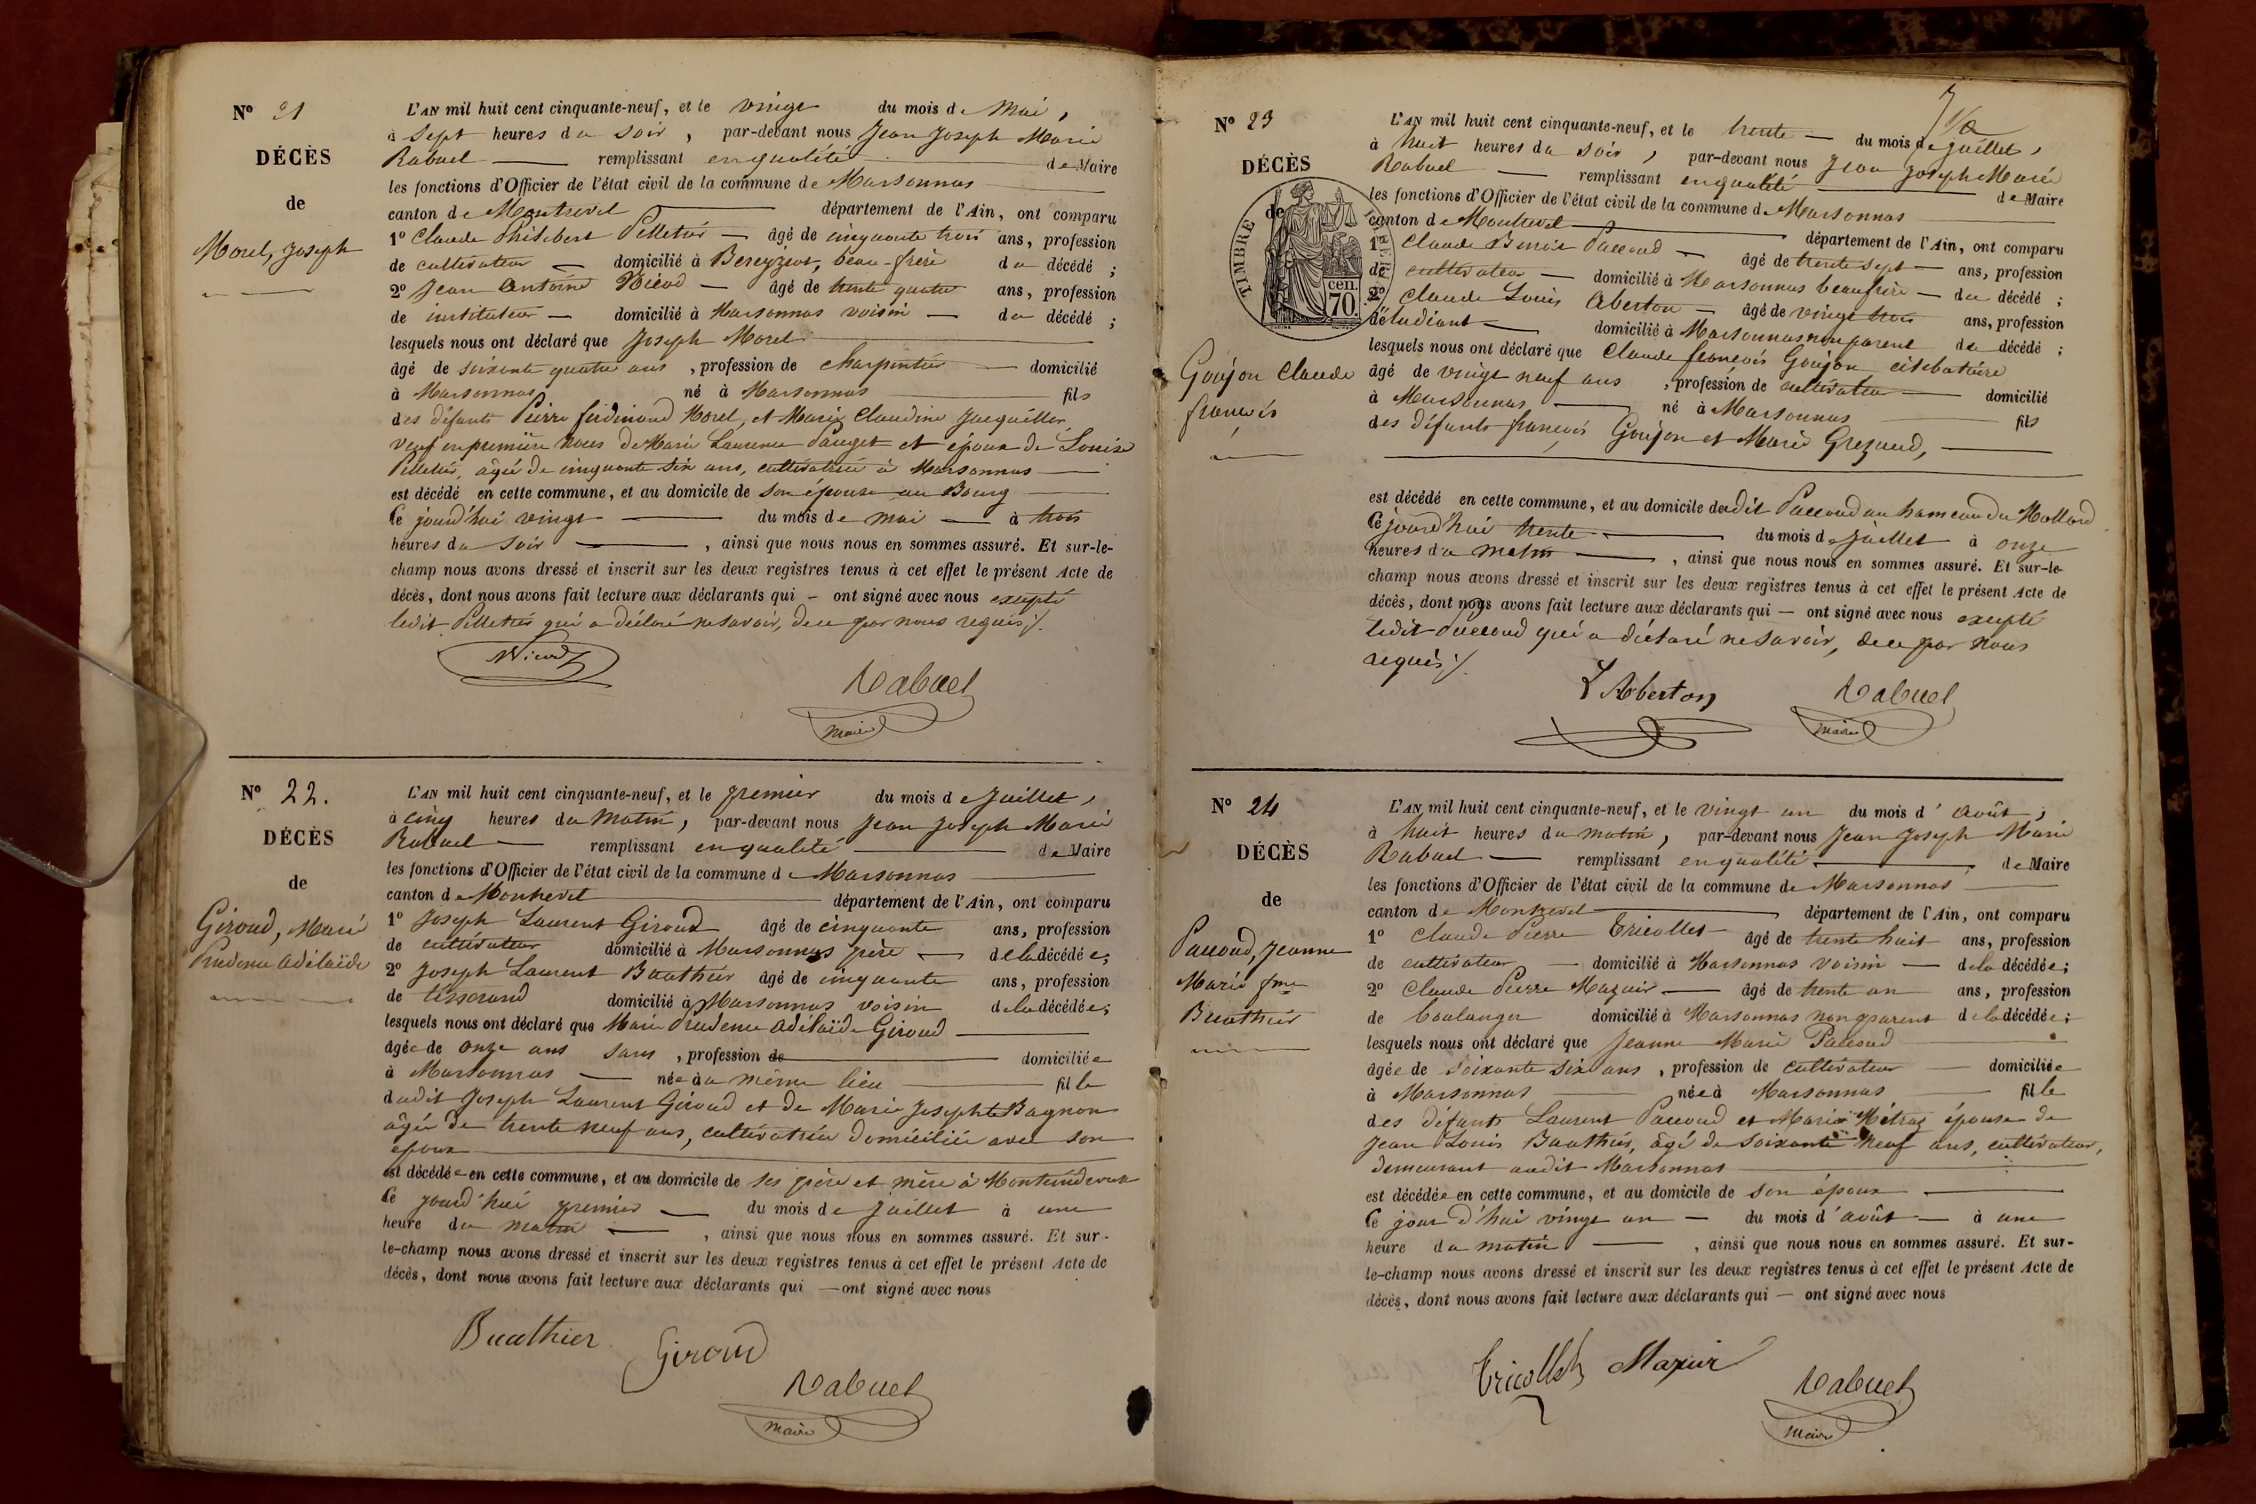 N° 21
DÉCÈS
de
Morel, Joseph
L'AN mil huit cent cinquante-neuf, et le vingt du mois de Mai,
à sept heures du soir, par-devant nous Jean Joseph Marie
Rabuel — remplissant en qualité — de Maire
les fonctions d'Officier de l'état civil de la commune de Marsonnas
canton de Montrevel — département de l'Ain, ont comparu
1° Claude Philibert Pelletier — âgé de cinquante trois ans, profession
de cultivateur — domicilié à Bereyziat, beau-frère du décédé ;
2° Jean Antoine Nicod — âgé de trente quatre ans, profession
de instituteur — domicilié à Marsonnas voisin — du décédé ;
lesquels nous ont déclaré que Joseph Morel
âgé de soixante quatre ans, profession de charpentier — domicilié
à Marsonnas né à Marsonnas — fils
des défunts Pierre ferdinand Morel, et Marie Claudine Jacquillon
veuf en première noces de Marie Laurence Pauget et époux de Louise
Pelletier, âgée de cinquante six ans, cultivatrice à Marsonnas —
est décédé en cette commune, et au domicile de son épouse au Bourg —
Ce jourd'hui vingt — du mois de mai — à trois
heures du soir —, ainsi que nous nous en sommes assuré. Et sur-le-
champ nous avons dressé et inscrit sur les deux registres tenus à cet effet le présent Acte de
décès, dont nous avons fait lecture aux déclarants qui — ont signé avec nous excepté
ledit Pelletier qui a déclaré ne savoir, de ce par nous requis ./.
Nicod
Rabuel
Maire
N° 22.
DÉCÈS
de
Giroud, Marie
Prudence Adélaïde
L'AN mil huit cent cinquante-neuf, et le premier du mois de Juillet,
à cinq heures du matin, par-devant nous Jean Joseph Marie
Rabuel — remplissant en qualité — de Maire
les fonctions d'Officier de l'état civil de la commune de Marsonnas —
canton de Montrevel — département de l'Ain, ont comparu
1° Joseph Laurent Giroud âgé de cinquante ans, profession
de cultivateur domicilié à Marsonnas père — de la décédée;
2° Joseph Laurent Buathier âgé de cinquante ans, profession
de tisserand domicilié à Marsonnas voisin de la décédée;
lesquels nous ont déclaré que Marie Prudence Adélaïde Giroud —
âgée de onze ans sans, profession de — domiciliée
à Marsonnas — née au même lieu — fille
dudit Joseph Laurent Giroud et de Marie Josephte Bagnon
âgée de trente neuf ans, cultivatrice domiciliée avec son
époux —
est décédée en cette commune, et au domicile de ses père et mère à
Ce jourd'hui premier — du mois de Juillet à une
heure du matin —, ainsi que nous nous en sommes assuré. Et sur-
le-champ nous avons dressé et inscrit sur les deux registres tenus à cet effet le présent Acte de
décès, dont nous avons fait lecture aux déclarants qui — ont signé avec nous
Buathier Giroud
Rabuel
Maire
N° 23
DÉCÈS
de
TIMBRE
70 cen.
Goujon Claude
françois
L'AN mil huit cent cinquante-neuf, et le trente — du mois de Juillet,
à huit heures du soir, par-devant nous Jean Joseph Marie
Rabuel — remplissant en qualité — de Maire
les fonctions d'Officier de l'état civil de la commune de Marsonnas
canton de Montrevel — département de l'Ain, ont comparu
1° Claude Benoit Paccoud — âgé de trente sept — ans, profession
de cultivateur — domicilié à Marsonnas beaufrère — du décédé ;
2° Claude Louis Aberton — âgé de vingt trois ans, profession
d'étudiant — domicilié à Marsonnas non parent du décédé ;
lesquels nous ont déclaré que Claude françois Goujon célibataire
âgé de vingt neuf ans, profession de cultivateur — domicilié
à Marsonnas — né à Marsonnas — fils
des défunts françois Goujon et Marie Grezaud, —
est décédé en cette commune, et au domicile dudit Paccoud au hameau du Mollard
Ce jourd'hui trente — du mois de Juillet à onze
heures du matin —, ainsi que nous nous en sommes assuré. Et sur-le-
champ nous avons dressé et inscrit sur les deux registres tenus à cet effet le présent Acte de
décès, dont nous avons fait lecture aux déclarants qui — ont signé avec nous excepté
ledit Paccoud qui a déclaré ne savoir, de ce par nous
requis ./.
L Aberton
Rabuel
Maire
N° 24
DÉCÈS
de
Paccoud, Jeanne
Marie fme
Buathier
L'AN mil huit cent cinquante-neuf, et le vingt un du mois d'Août,
à huit heures du matin, par-devant nous Jean Joseph Marie
Rabuel — remplissant en qualité — de Maire
les fonctions d'Officier de l'état civil de la commune de Marsonnas —
canton de Montrevel — département de l'Ain, ont comparu
1° Claude Pierre Tricollet âgé de trente huit ans, profession
de cultivateur — domicilié à Marsonnas voisin — de la décédée;
2° Claude Pierre Mazuir — âgé de trente un ans, profession
de boulanger domicilié à Marsonnas non parent de la décédée;
lesquels nous ont déclaré que Jeanne Marie Paccoud
âgée de soixante six ans, profession de cultivateur — domiciliée
à Marsonnas — née à Marsonnas — fille
des défunts Laurent Paccoud et Marie Métraz épouse de
Jean Louis Buathier, âgé de soixante neuf ans, cultivateur,
demeurant audit Marsonnas —
est décédée en cette commune, et au domicile de son époux —
Ce jour d'hui vingt un — du mois d'août — à une
heure du matin —, ainsi que nous nous en sommes assuré. Et sur-
le-champ nous avons dressé et inscrit sur les deux registres tenus à cet effet le présent Acte de
décès, dont nous avons fait lecture aux déclarants qui — ont signé avec nous
Tricollet Mazuir
Rabuel
Maire